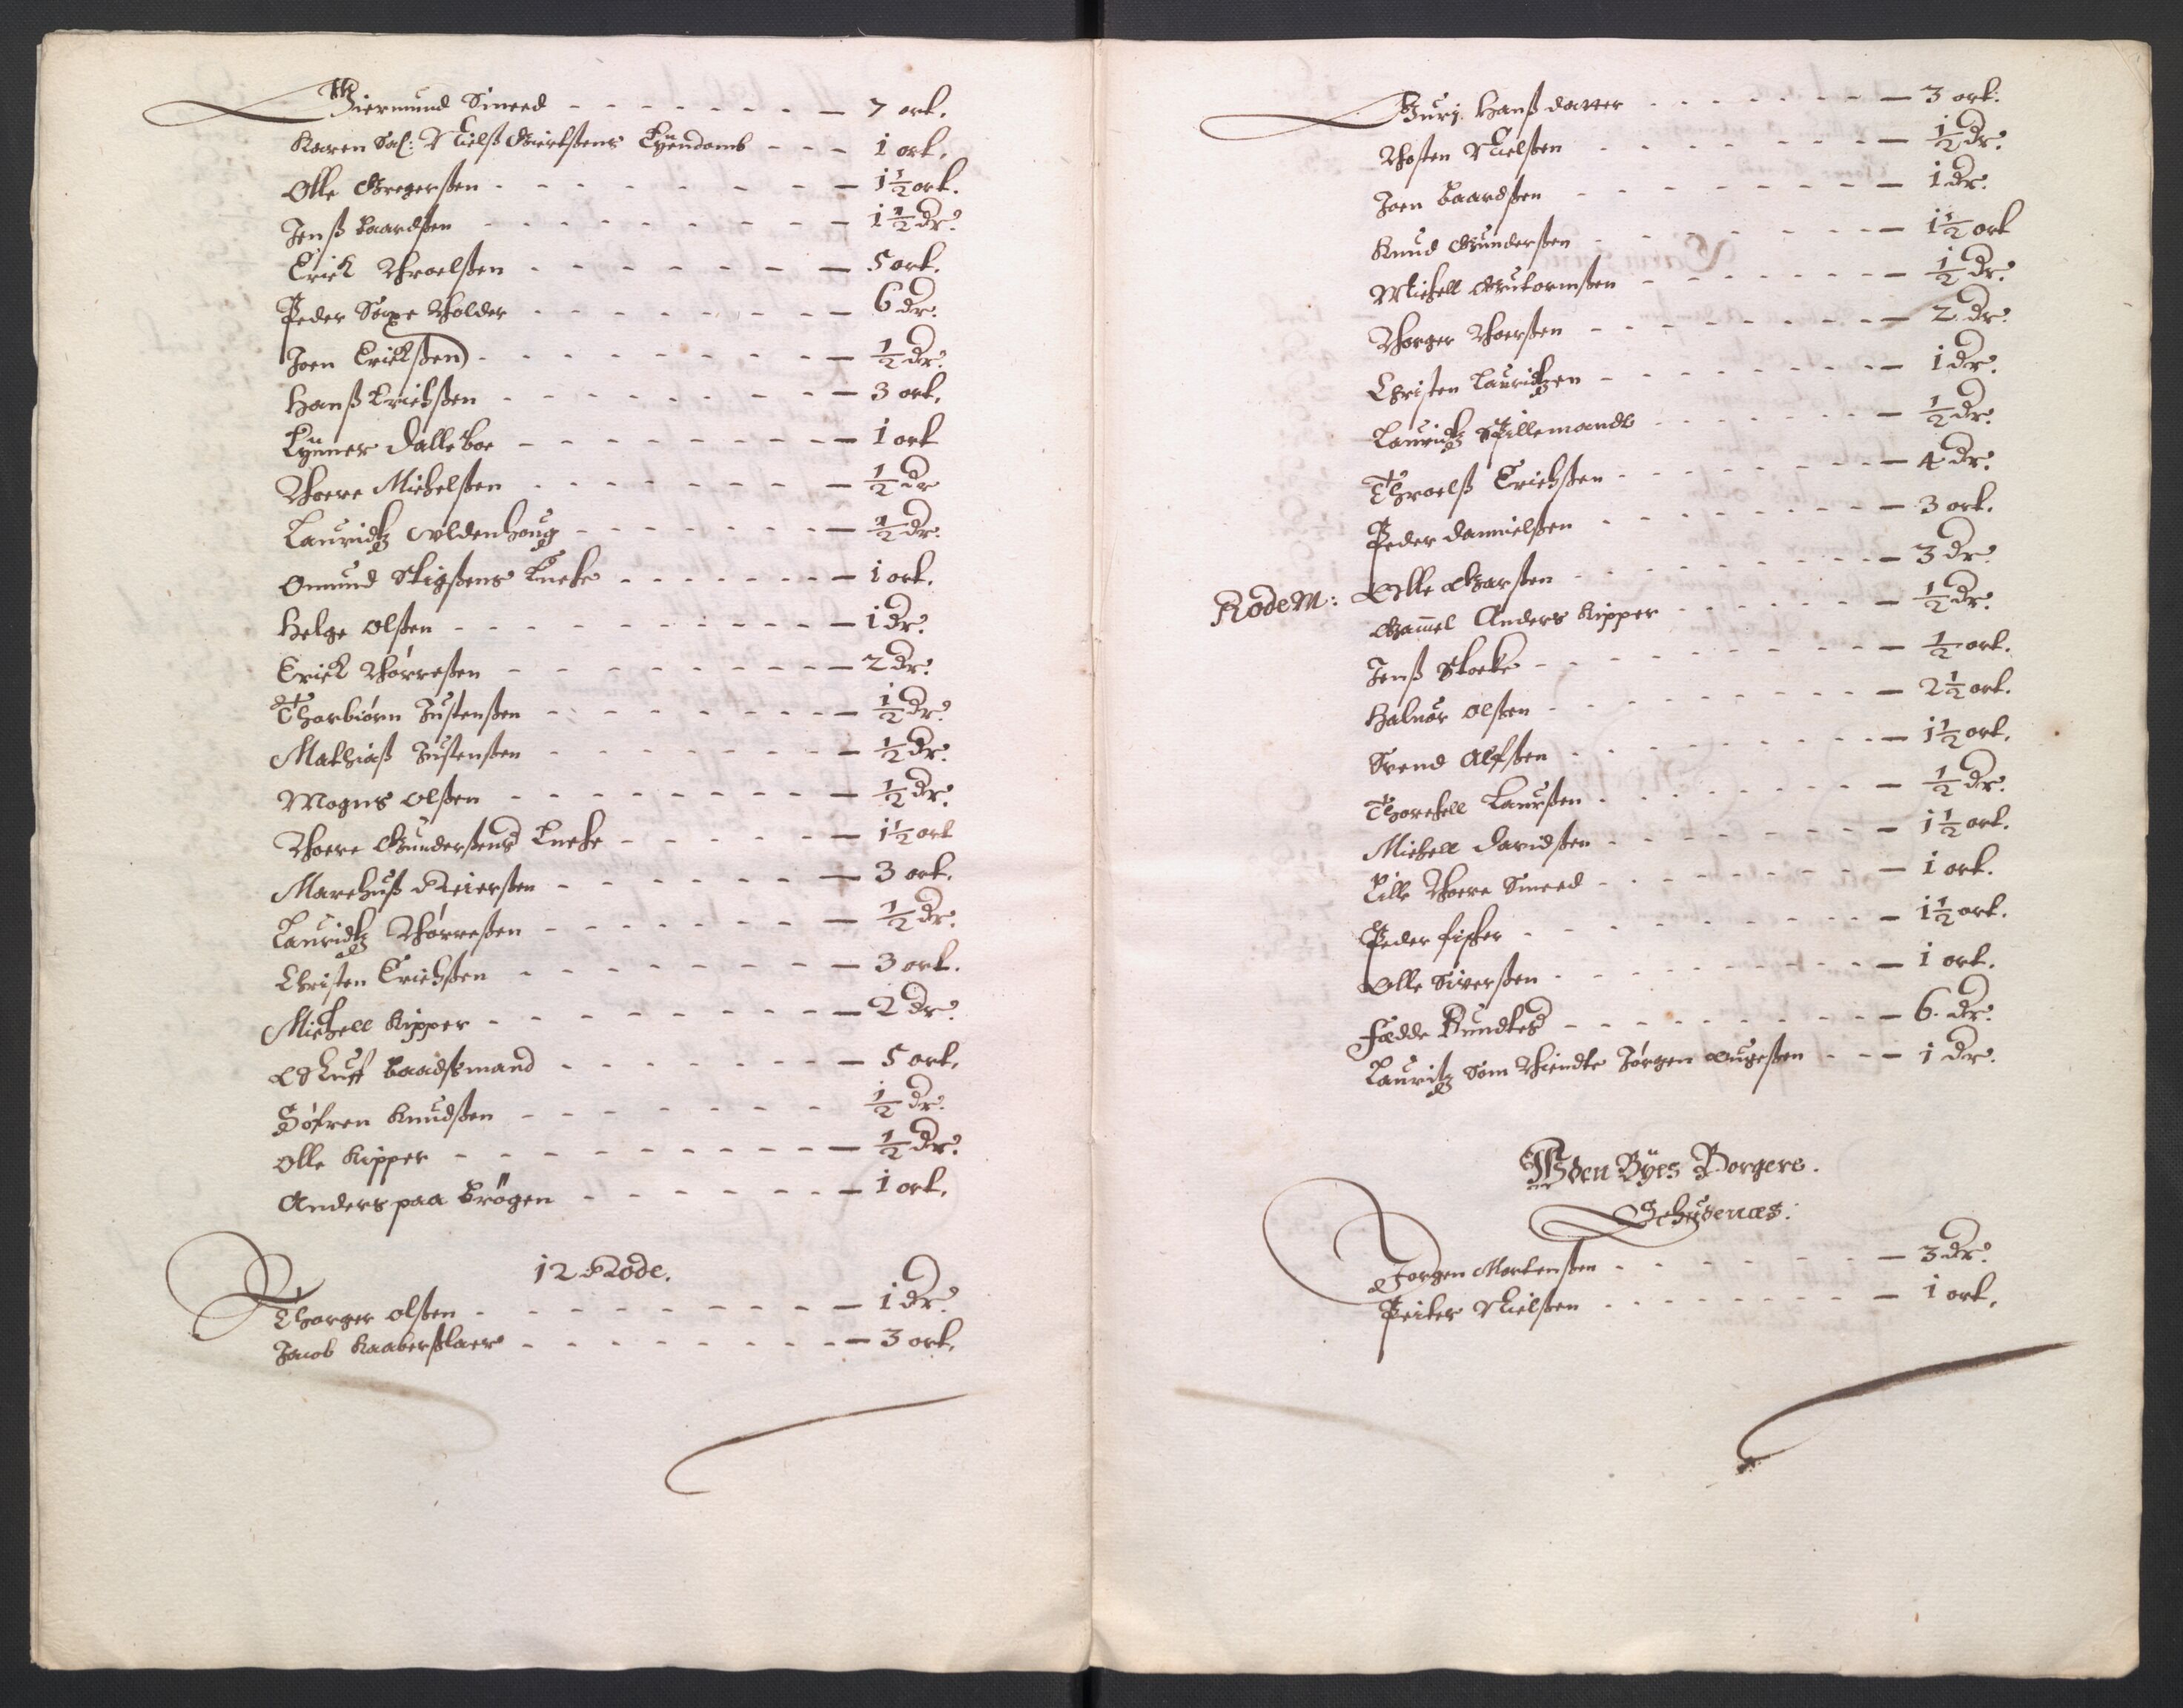 Giermund Smeed - - - - - - - - 7 ort.
Karen Sal: Nielß Giertsens Eyendomb - - - 1 ort.
Olle Gregersßen - - - - - - - - 1½ ort.
Jenß Baardßen - - - - - - - - 1½ dr.
Erick Throelßen - - - - - - - 5 ort.
Peder Saxe Holder - - - - - - - 6 dr.
Joen Erickßen - - - - - - - - ½ dr.
Hanß Erichßen - - - - - - - - 3 ort.
Eyner Dalleboe - - - - - - - - 1 ort
Thore Michelßen - - - - - - - ½ dr
Lauridtz Oldenhoug - - - - - - - ½ dr.
Omund Stigßens Encke - - - - - - - 1 ort.
Helge Olßen - - - - - - - - - 1 dr.
Erick Thørreßen - - - - - - - - 2 dr.
Thorbiørn Justenßen - - - - - - - ½ dr.
Mathiaß Justenßen - - - - - - - ½ dr.
Mogns Olßen - - - - - - - - ½ dr.
Thore Gunderßens Encke - - - - - - 1½ ort
Marchuß Reierßen - - - - - - - 3 ort.
Lauridtz Thørreßen - - - - - - - ½ dr.
Christen Erichßen - - - - - - - - 3 ort.
Michell Kipper - - - - - - - - 2 dr.
Oluff Baadßmand - - - - - - - 5 ort.
Søfren Knudßen - - - - - - - ½ dr.
Olle Kipper - - - - - - - - - ½ dr.
Anders paa Brögen - - - - - - 1 ort.
12 Rode.
Thorger Olßen - - - - - - - - 1 dr.
Jacob Kaaberßlaer - - - - - - - - 3 ort.
Gurj Hanß datter - - - - - - - 3 ort.
Thosten Nielßen - - - - - - - ½ dr.
Joen Baardßen - - - - - - - - 1 dr.
Knud Gunderßen - - - - - - - 1½ ort
Michell Gutormßen - - - - - - - ½ dr.
Thorger Thoerßen - - - - - - - - 2 dr.
Christen Lauridtzen - - - - - - - 1 dr.
Lauridtz Spillemandt - - - - - - ½ dr.
Throelß Erichßen - - - - - - - - 4 dr.
Peder Dannielßen - - - - - - - 3 ort.
Rodem: Olle Ifuarßen - - - - - - - - 3 dr.
Gam̅el Anders Kipper - - - - - - ½ dr.
Jenß Stocke - - - - - - - - - ½ ort.
Halvor Olßen - - - - - - - - 2½ ort.
Svend Alfßen - - - - - - - - 1½ ort.
Thorchell Laurßen - - - - - - - ½ dr.
Michell Davidßen - - - - - - - 1½ ort.
Lille Thore Smeed - - - - - - - 1 ort.
Peder Fisker - - - - - - - - - 1½ ort.
Olle Siverßen - - - - - - - - 1 ort.
Fædde Bundtes - - - - - - - - 6. dr.
Lauritz som thiendte Jørgen Augeßen - - - 1 dr.
Uden Byes Borgere.
Schudenæs:
Jørgen Mortenßen - - - - - - - 3 dr.
Peiter Nielßen - - - - - - - - 1 ort.